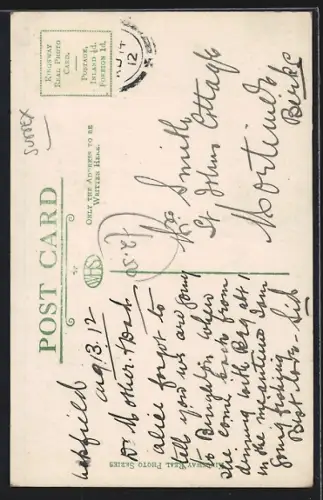 KINGSWAY
REAL PHOTO
CARD.
POSTAGE,
INLAND ½d.
FOREIGN 1d.
12
SUSSEX
POST CARD
ONLY THE ADDRESS TO BE
WRITTEN HERE.
WHS
£2.50
Mrs Smith
St Johns Cottage
Mortimer
Berks
Uckfield
Aug 13. 12
Dr Mother &
Alice forgot to
tell you we are going
to Brighton when
she come back from
dinning with
in the meantime I am
going fishing
Best love
KINGSWAY REAL PHOTO SERIES